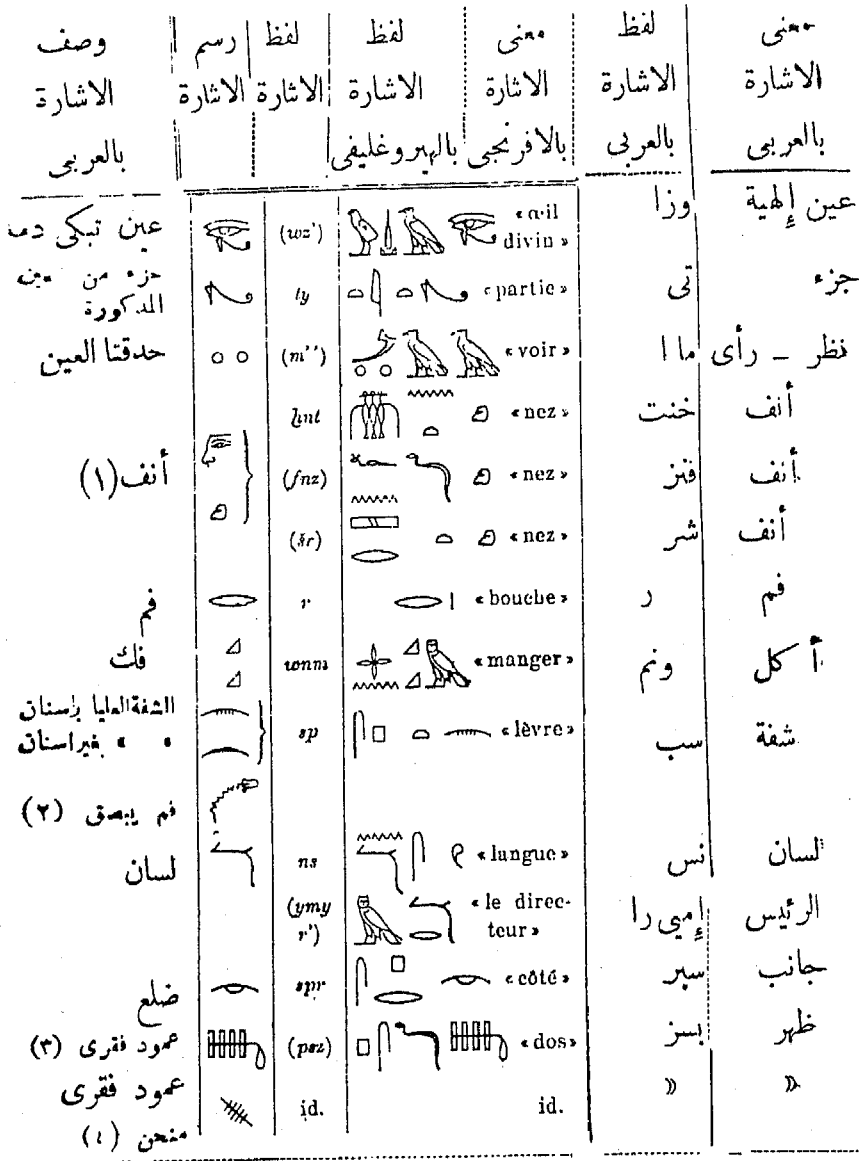 معنى الاشارة بالعربى | لفظ الاشارة بالعربى | معنى الاشارة بالافرنجى | لفظ الاشارة بالهيروغليفى | لفظ الاشارة | رسم الاشارة | وصف الاشارة بالعربى
عين إلهية | وزا | «œil divin» | (wz') | عين تبكى
جزء | تى | «partie» | ty | جزء من المذكورة
نظر – رأى | ما ا | «voir» | (m'') | حدقتا العين
أنف | خنت | «nez» | ḫnt
أنف | فنز | «nez» | (fnz) | أنف (١)
أنف | شر | «nez» | (šr)
فم | ر | «bouche» | r | فم
أكل | ونم | «manger» | wnm | فك
شفة | سب | «lèvre» | sp | الشفة العليا بإسنان
» » بغير اسنان
فم يبصق (٢)
لسان | نس | «langue» | ns | لسان
الرئيس | إميى را | «le direc-teur» | (ymy r')
جانب | سبر | «côté» | spr | ضلع
ظهر | بسز | «dos» | (psz) | عمود فقرى (٣)
» | » | id. | id. | عمود فقرى منحن (٤)